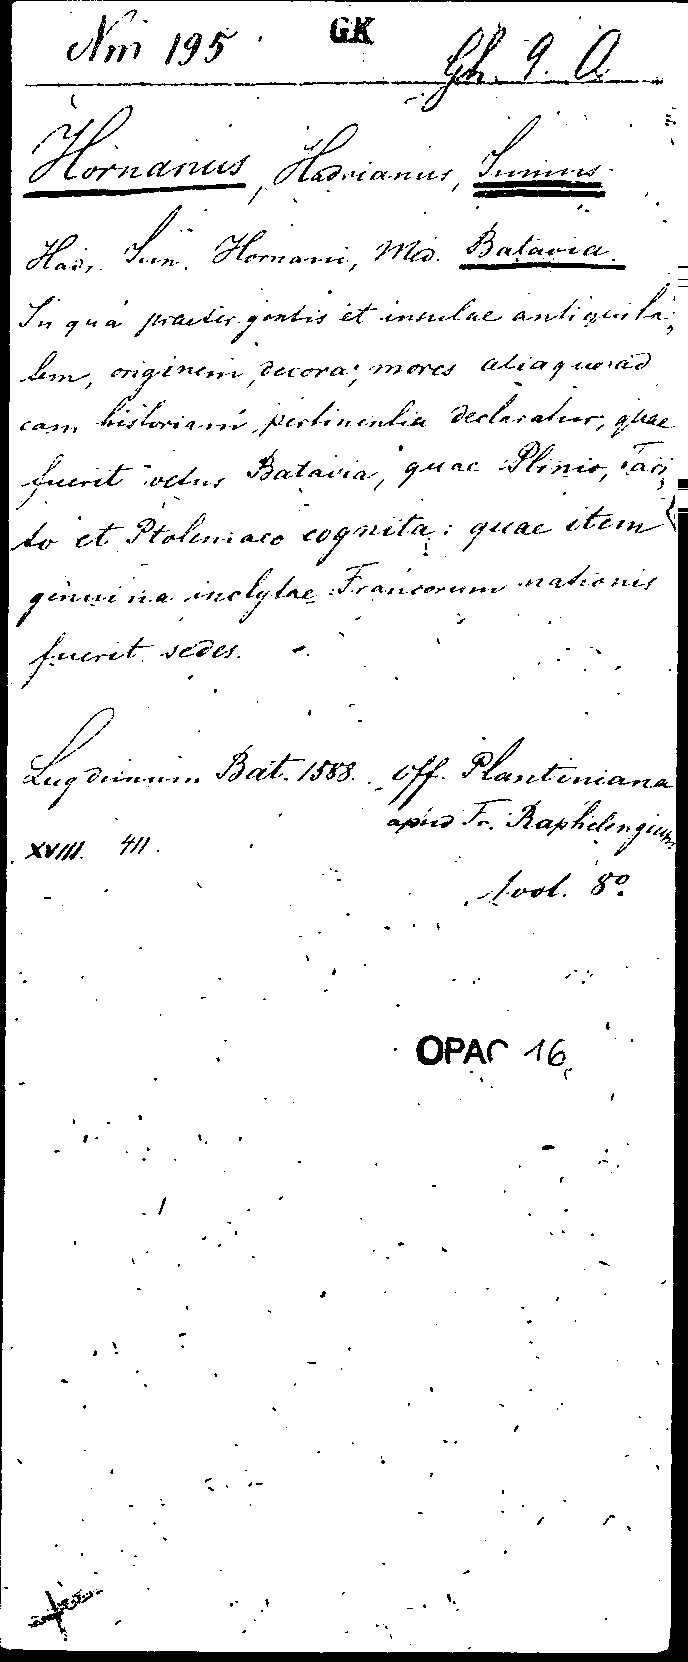 Nm 195 GK Gh. 9. A.
Hornanus, Hadrianus, Junius.
Hadr. Jun. Hornani, Med. Batavia.
In qua praeter gentis et insulae antiquita-
tem, originem, decora, mores aliaque ad
eam historiam pertinentia declaratur, quae
fuerit vetus Batavia, quae Plinio, Taci-
to et Ptolemaeo cognita: quae item
genuina inclytae Francorum nationis
fuerit sedes.
Lugdunum Bat. 1588. Off. Plantiniana
apud Fr. Raphelengium.
XVIII. 411.
1 vol. 8º.
OPAC 16